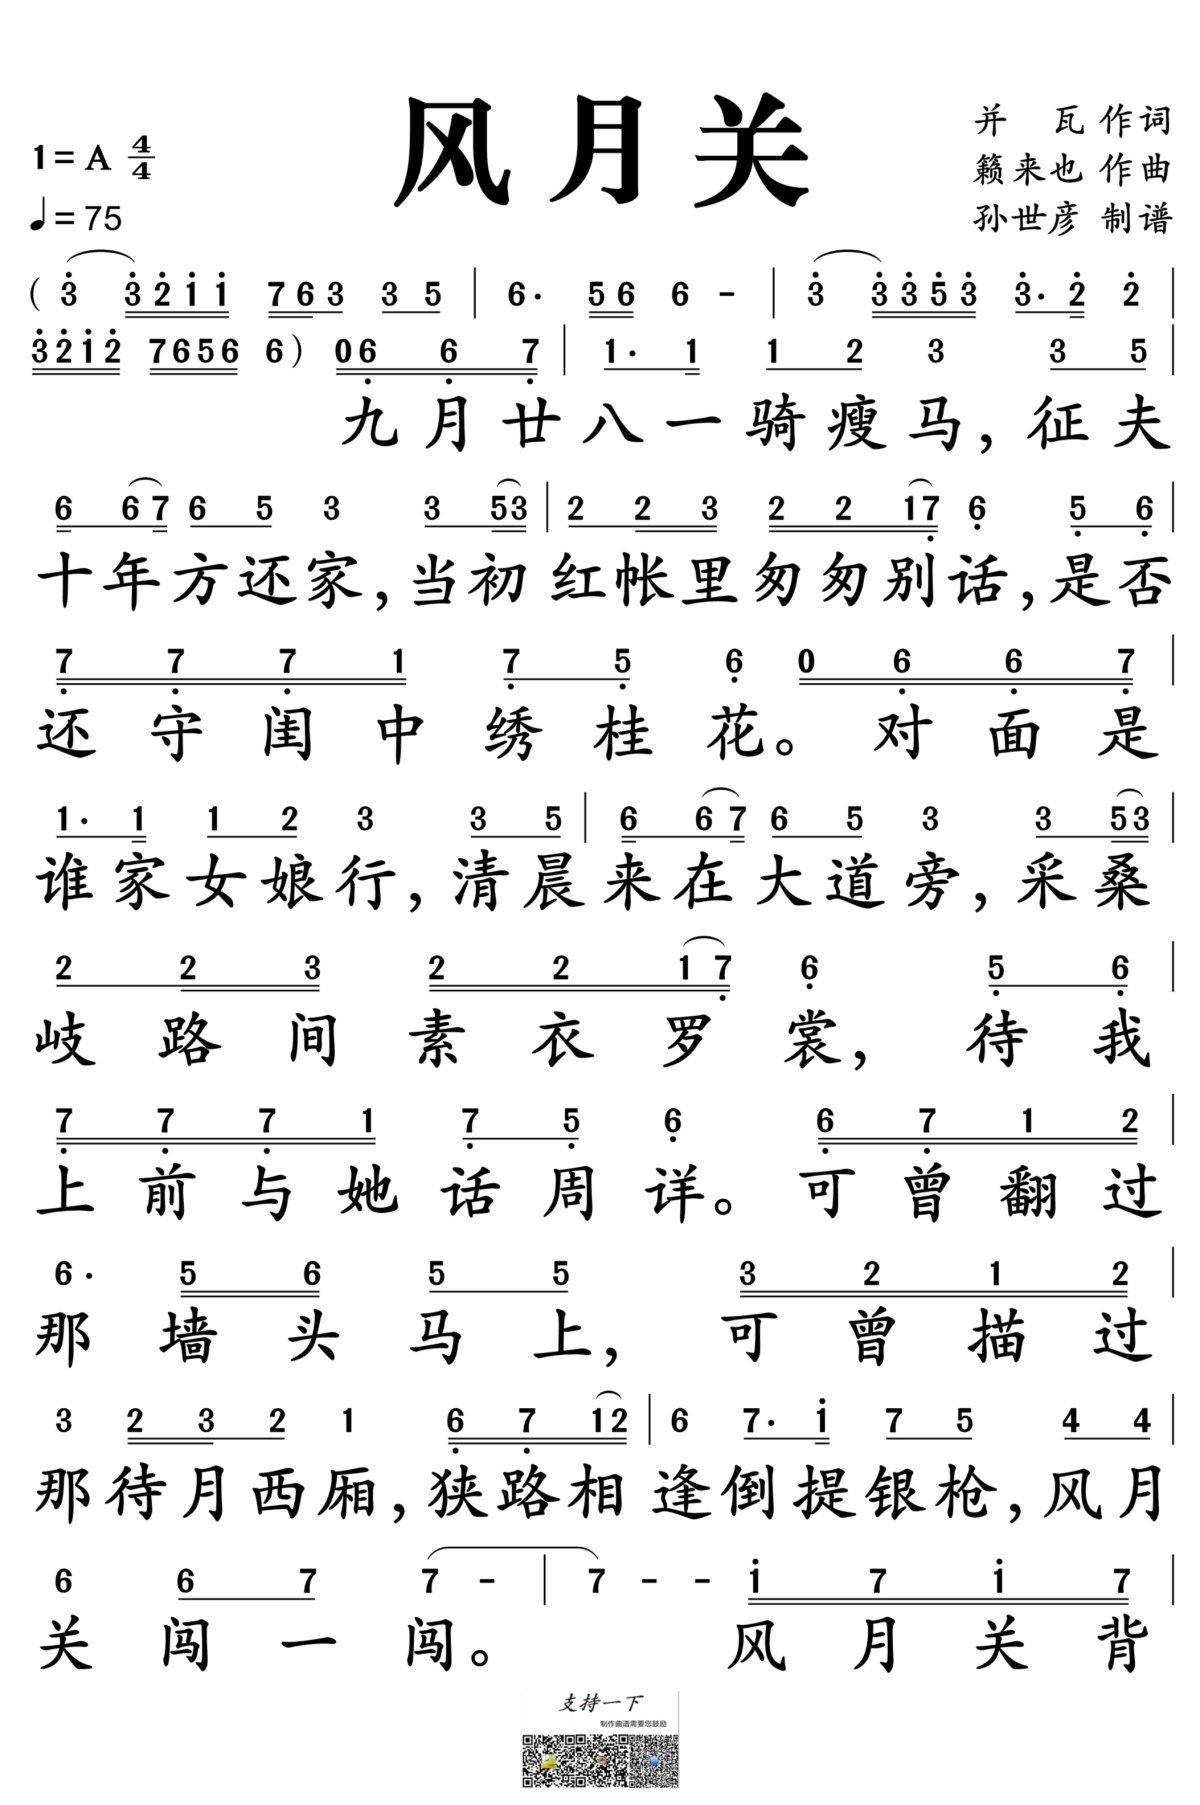 风月关
1=A 4/4
♩=75
并 瓦 作词
籁来也 作曲
孙世彦 制谱
( 3 3 2 1 1 7 6 3 3 5 | 6· 5 6 6 - | 3 3 3 5 3 3· 2 2 |
3 2 1 2 7 6 5 6 6 ) 0 6 6 7 | 1· 1 1 2 3 3 5 |
九月廿八一骑瘦马,征夫
6 6 7 6 5 3 3 5 3 | 2 2 3 2 2 1 7 6 5 6 |
十年方还家,当初红帐里匆匆别话,是否
7 7 7 1 7 5 6 0 6 6 7 |
还守闺中绣桂花。对面是
1· 1 1 2 3 3 5 | 6 6 7 6 5 3 3 5 3 |
谁家女娘行,清晨来在大道旁,采桑
2 2 3 2 2 1 7 6 5 6 |
歧路间素衣罗裳,待我
7 7 7 1 7 5 6 6 7 1 2 |
上前与她话周详。可曾翻过
6· 5 6 5 5 3 2 1 2 |
那墙头马上,可曾描过
3 2 3 2 1 6 7 1 2 | 6 7· 1 7 5 4 4 |
那待月西厢,狭路相逢倒提银枪,风月
6 6 7 7 - | 7 - - 1 7 1 7 |
关闯一闯。风月关背
支持一下
制作曲谱需要您鼓励